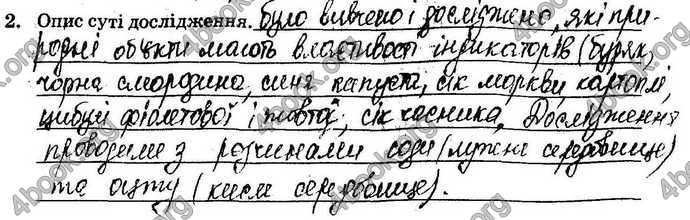 2. Опис суті дослідження. Було вивчено і досліджено, які при-
родні об'єкти мають властивості індикаторів (буряк,
чорна смородина, синя капуста, сік моркви, картоплі,
цибулі фіолетової і жовтої, сік часника. Дослідження
проводили з розчинами соди (лужне середовище)
та оцту (кисле середовище).